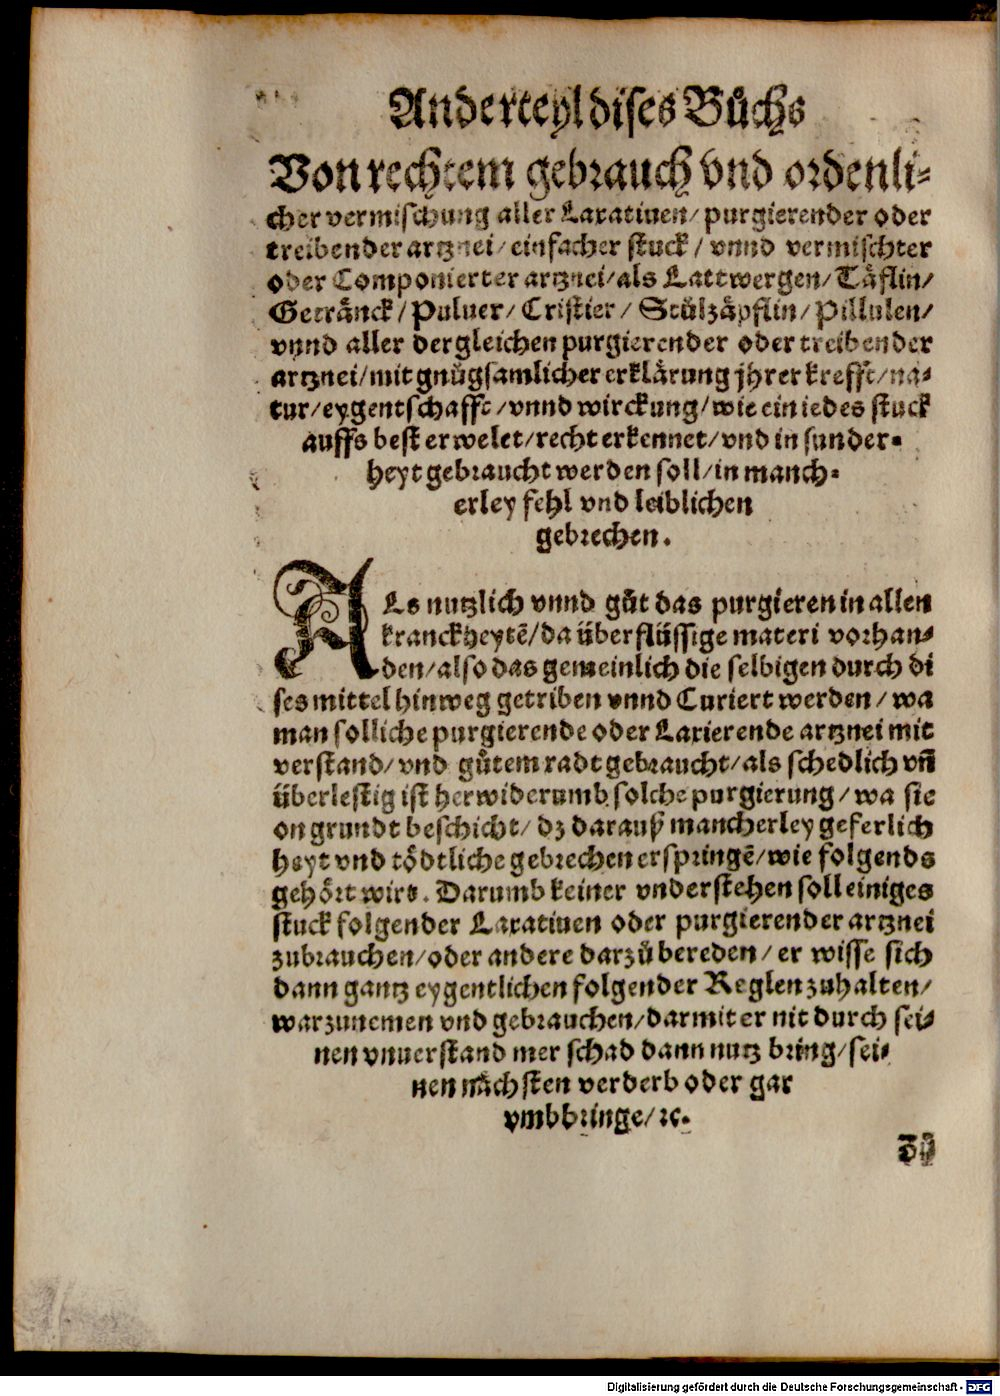 Ander teyl dises Bůchs
Von rechtem gebrauch vnd ordenli⸗
cher vermischung aller Laxatiuen/ purgierender oder
treibender artznei/ einfacher stuck/ vnnd vermischter
oder Componierter artznei/ als Lattwergen/ Täflin/
Getränck/ Puluer/ Cristier/ Stůlzäpflin/ Pillulen/
vnnd aller dergleichen purgierender oder treibender
artznei/ mit gnůgsamlicher erklärung jhrer krefft/ na⸗
tur/ eygentschafft/ vnnd wirckung/ wie ein iedes stuck
auffs best erwelet/ recht erkennet/ vnd in sunder⸗
heyt gebraucht werden soll/ in manch⸗
erley fehl vnd leiblichen
gebrechen.
ALs nutzlich vnnd gůt das purgieren in allen
kranckheytē/ da überflüssige materi vorhan⸗
den/ also das gemeinlich die selbigen durch di
ses mittel hinweg getriben vnnd Curiert werden/ wa
man solliche purgierende oder Laxierende artznei mit
verstand/ vnd gůtem radt gebraucht/ als schedlich vñ
überlestig ist herwiderumb solche purgierung/ wa sie
on grundt beschicht/ dz darauß mancherley geferlich
heyt vnd tödtliche gebrechen erspringē/ wie folgends
gehört wirt. Darumb keiner vnderstehen soll einiges
stuck folgender Laxatiuen oder purgierender artznei
zubrauchen/ oder andere darzů bereden/ er wisse sich
dann gantz eygentlichen folgender Reglen zuhalten/
warzunemen vnd gebrauchen/ darmit er nit durch sei⸗
nen vnuerstand mer schad dann nutz bring/ sei⸗
nen nächsten verderb oder gar
vmbbringe/ ꝛc.
Digitalisierung gefördert durch die Deutsche Forschungsgemeinschaft - DFG